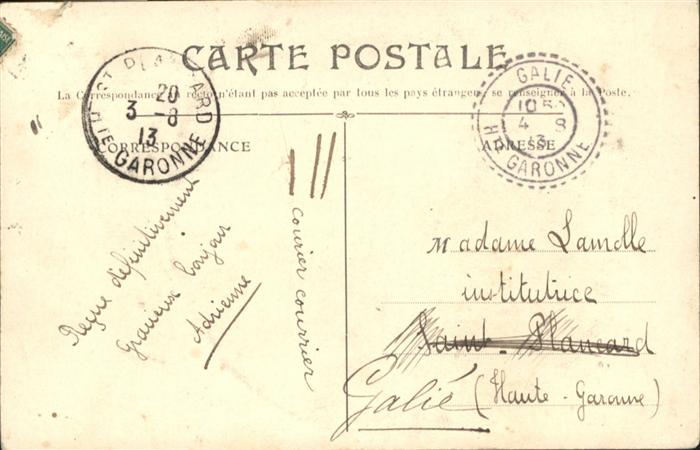 CARTE POSTALE
La Correspondance au recto n'étant pas acceptée par tous les pays étrangers, se renseigner à la Poste.
CORRESPONDANCE
ADRESSE
20
3 -8
13
Hte GARONNE
GALIE
10 5
4 8
13
Hte GARONNE
Reçue définitivement
bonjour
Adrienne
courier courrier
Madame Lamolle
institutrice
Saint-Plancard
Galié (Haute-Garonne)